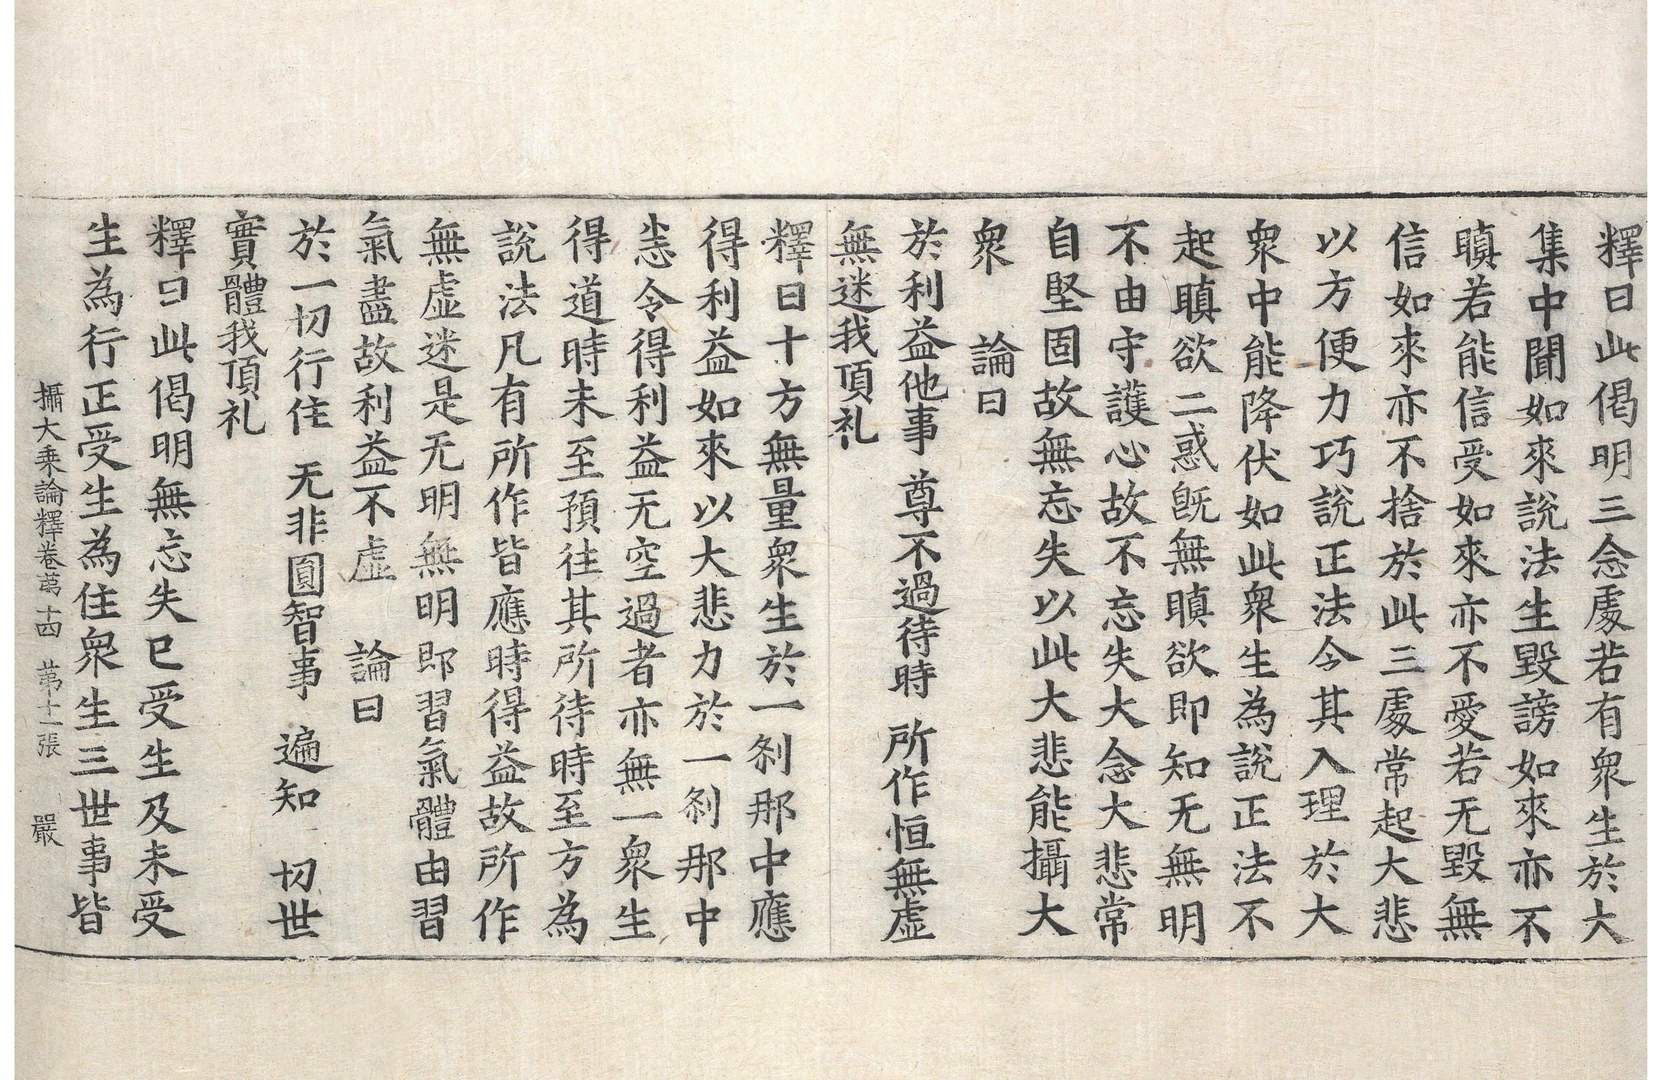 釋曰此偈明三念處若有衆生於大
集中聞如來說法生毀謗如來亦不
瞋若能信受如來亦不愛若无毀無
信如來亦不捨於此三處常起大悲
以方便力巧說正法令其入理於大
衆中能降伏如此衆生為說正法不
起瞋欲二惑旣無瞋欲即知无無明
不由守護心故不忘失大念大悲常
自堅固故無忘失以此大悲能攝大
衆　論曰
於利益他事　尊不過待時　所作恒無虛
無迷我頂礼
釋曰十方無量衆生於一刹那中應
得利益如來以大悲力於一刹那中
悉令得利益无空過者亦無一衆生
得道時未至預往其所待時至方為
說法凡有所作皆應時得益故所作
無虛迷是无明無明即習氣體由習
氣盡故利益不虛　論曰
於一切行住　无非圓智事　遍知一切世
實體我頂礼
釋曰此偈明無忘失已受生及未受
生為行正受生為住衆生三世事皆
攝大乗論釋卷苐十四　苐十一張　嚴